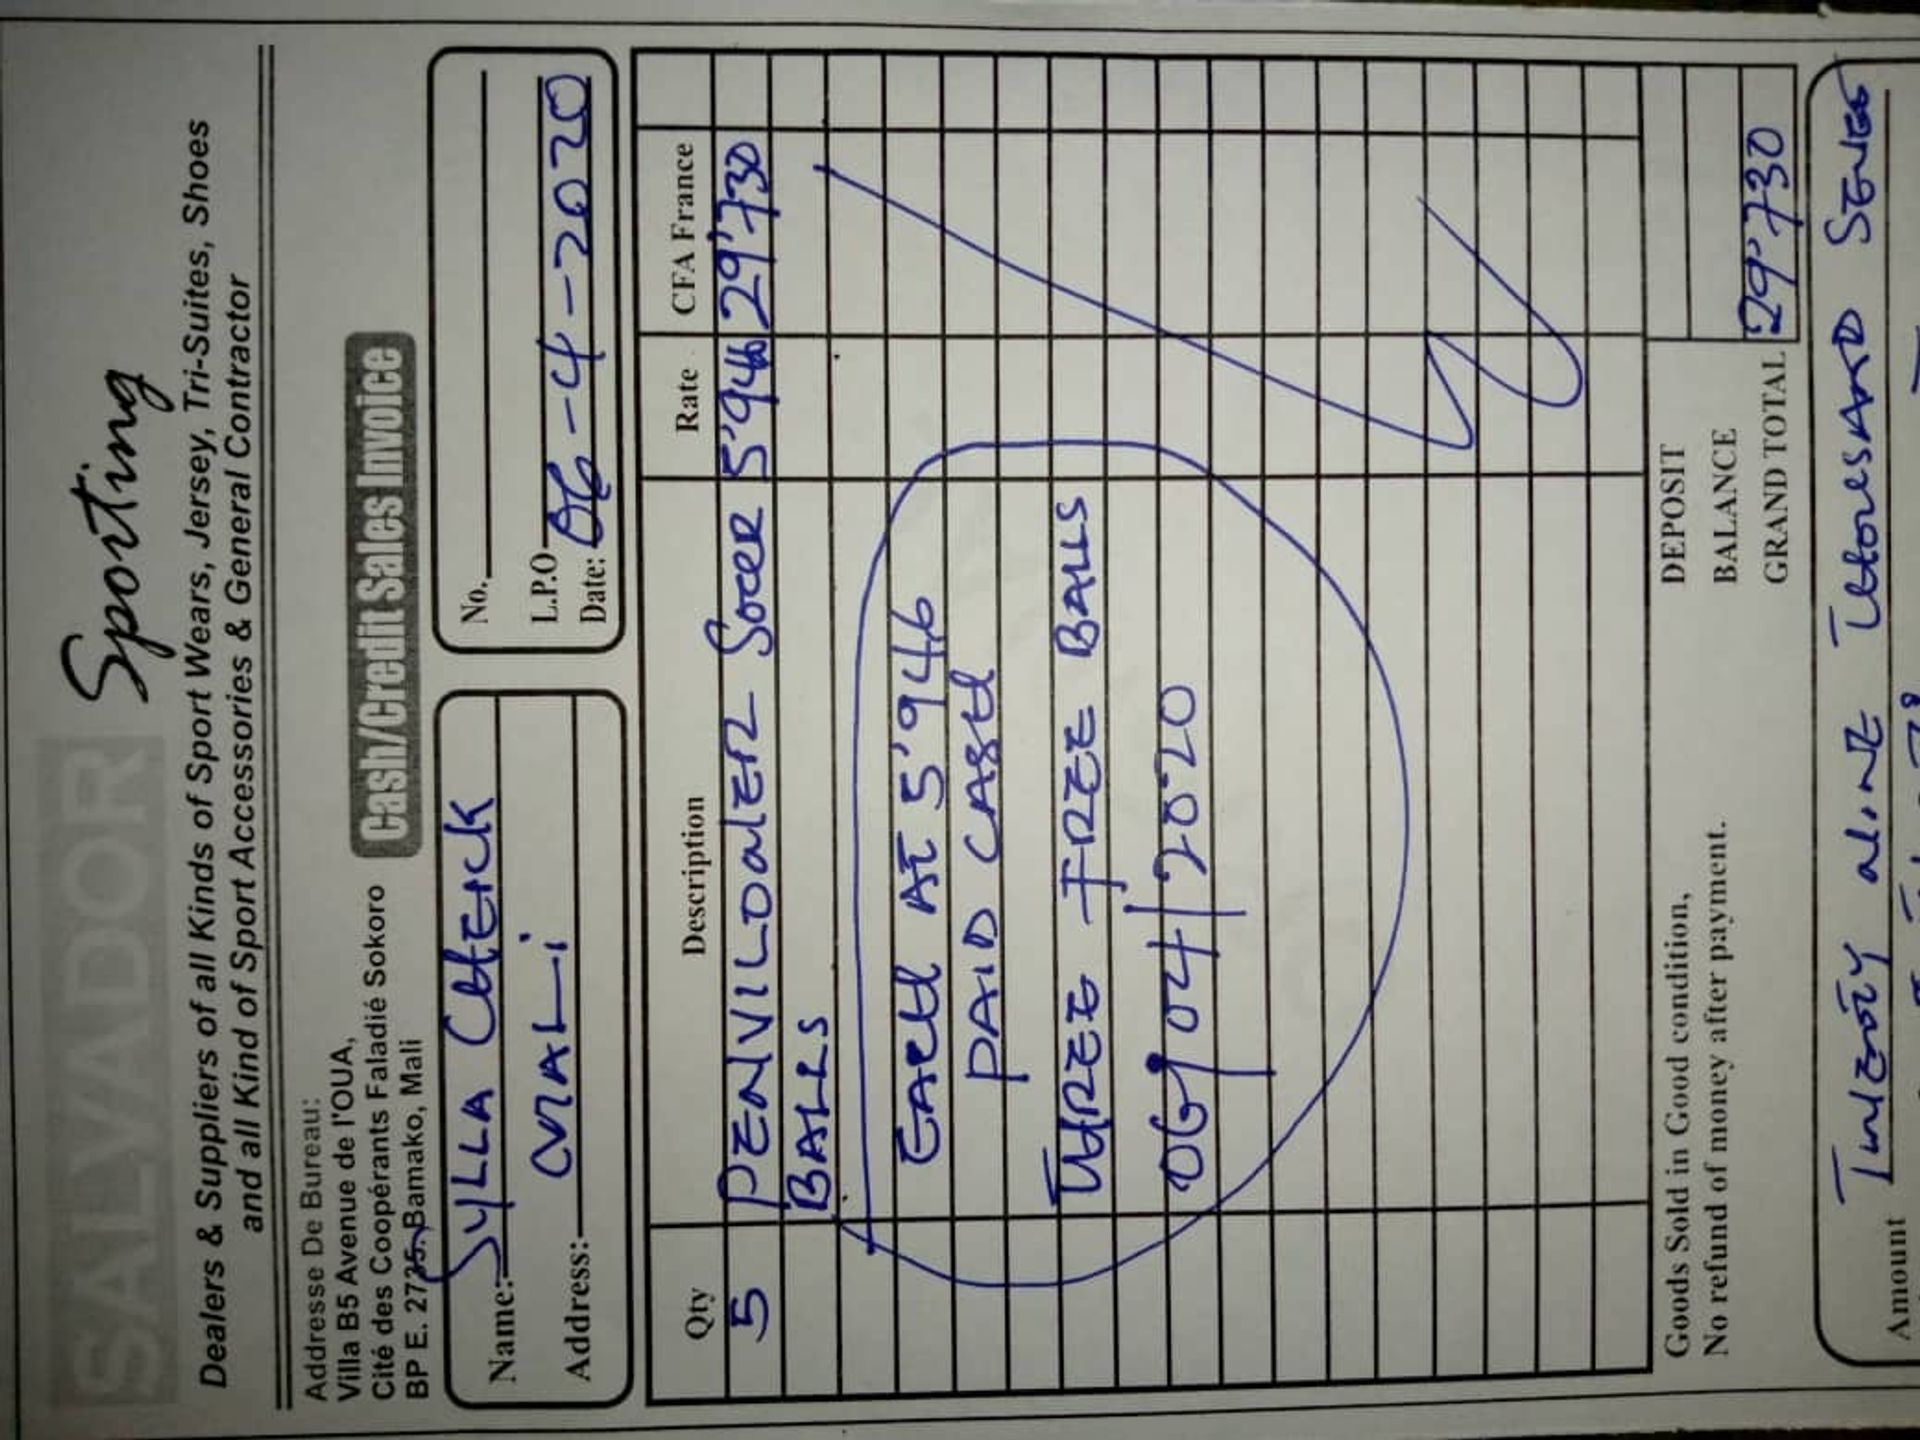 SALVADOR Sporting
Dealers & Suppliers of all Kinds of Sport Wears, Jersey, Tri-Suites, Shoes
and all Kind of Sport Accessories & General Contractor
Addresse De Bureau:
Villa B5 Avenue de l'OUA,
Cité des Coopérants Faladié Sokoro
BP E. 2735. Bamako, Mali
Cash/Credit Sales Invoice
Name: SYLLA CHEICK
Address: MALI
No.
L.P.O
Date: 06-4-2020
Qty Description Rate CFA France
5 PENVILOALER Socer 5'946 29'730
BALLS
EACH AT 5'946
PAID CASH
THREE FREE BALLS
06/04/2020
Goods Sold in Good condition,
No refund of money after payment.
DEPOSIT
BALANCE
GRAND TOTAL 29'730
Amount TWENTY NINE THOUSAND SEVEN